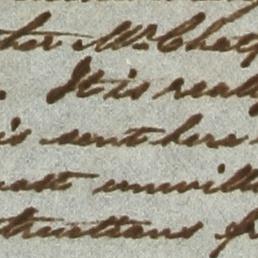 ther Mr Chat
. It is reall
is sent here
most unwill
structions f